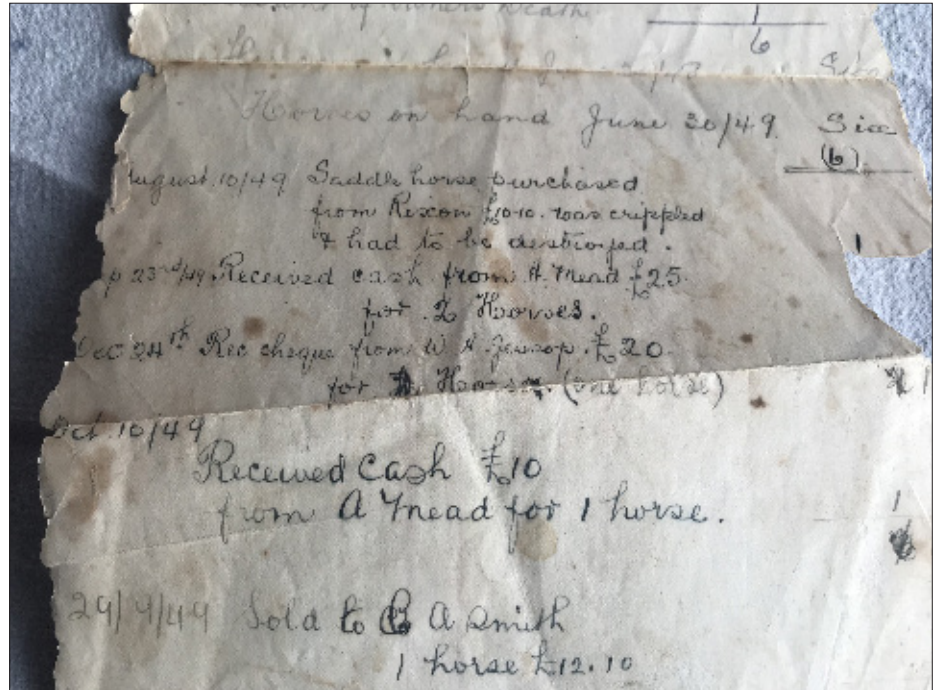 of owners death. 1
6
Horses on hand June 30/49. Six
(6)
August 10/49 Saddle horse purchased
from Rixon £10-10. was crippled
& had to be destroyed. 1
p 23rd/49 Received cash from A. Mead £25
for 2 Horses.
Dec 24th Rec cheque from W. A. Jessop. £20
for Horse. (one horse) 1
Oct. 10/49
Received Cash £10
from A Mead for 1 horse. 1
29/9/49 Sold to A Smith
1 horse £12.10